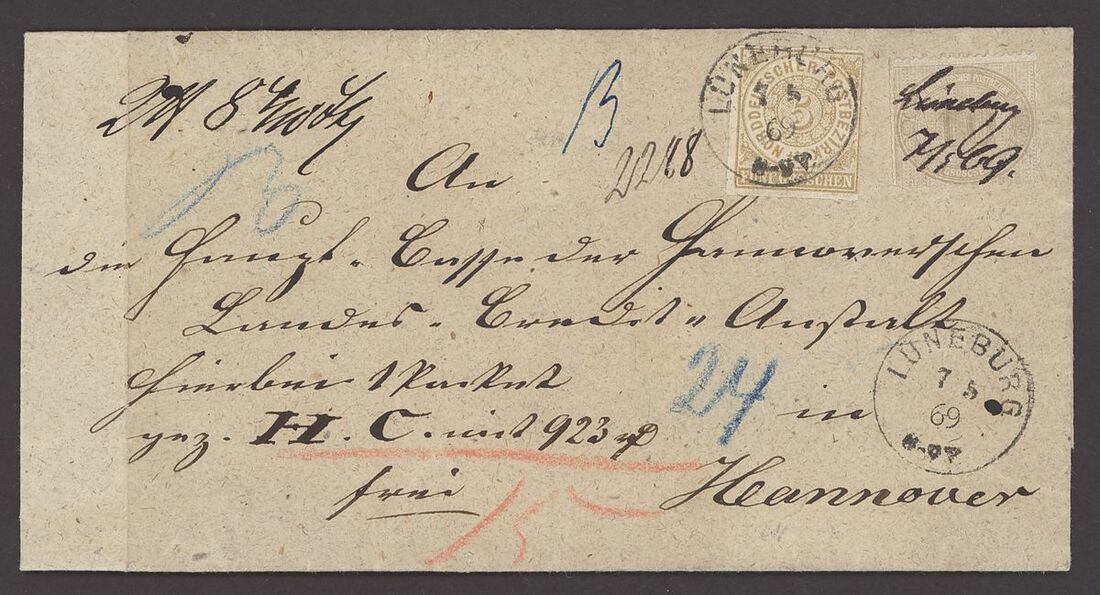 LÜNEBURG
7 5
69
NORDDEUTSCHER POSTBEZIRK
5
FÜNF GROSCHEN
Lüneburg
7/5 69.
B
2218
An
die Haupt-Casse der Hannoverschen
Landes-Credit-Anstalt
hierbei 1 Packet
24
in
LÜNEBURG
7 5
69
gez. H. C. mit 923
frei
Hannover
15